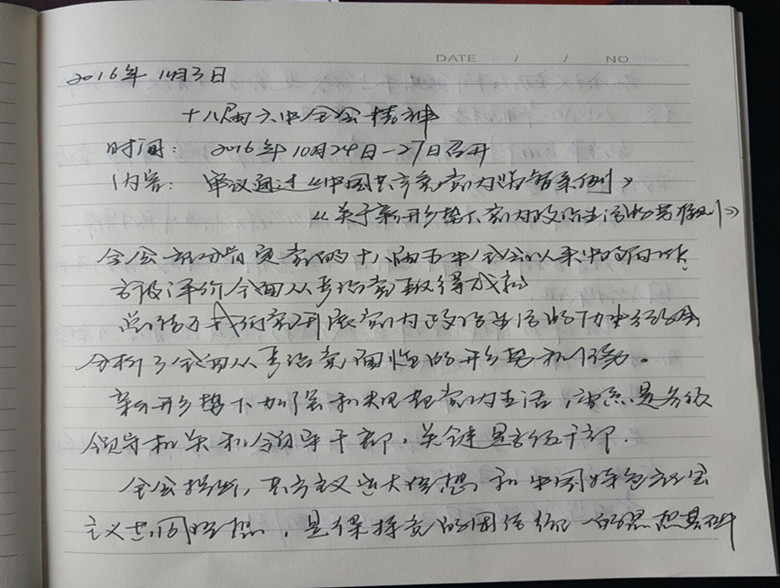 DATE / / NO
2016年 11月3日
十八届六中全会精神
时间： 2016年10月24日—27日召开
内容： 审议通过《中国共产党党内监督条例》
《关于新形势下党内政治生活的若干准则》
全会充分肯定党的十八届五中全会以来中央的工作
高度评价全面从严治党取得成就
总结了我们党开展党内政治生活的历史经验
分析了全面从严治党面临的形势和任务。
新形势下加强和规范党内生活，重点是各级
领导机关和领导干部，关键是高级干部.
全会指出，共产主义远大理想和中国特色社会
主义共同理想，是保持党的团结统一的思想基础